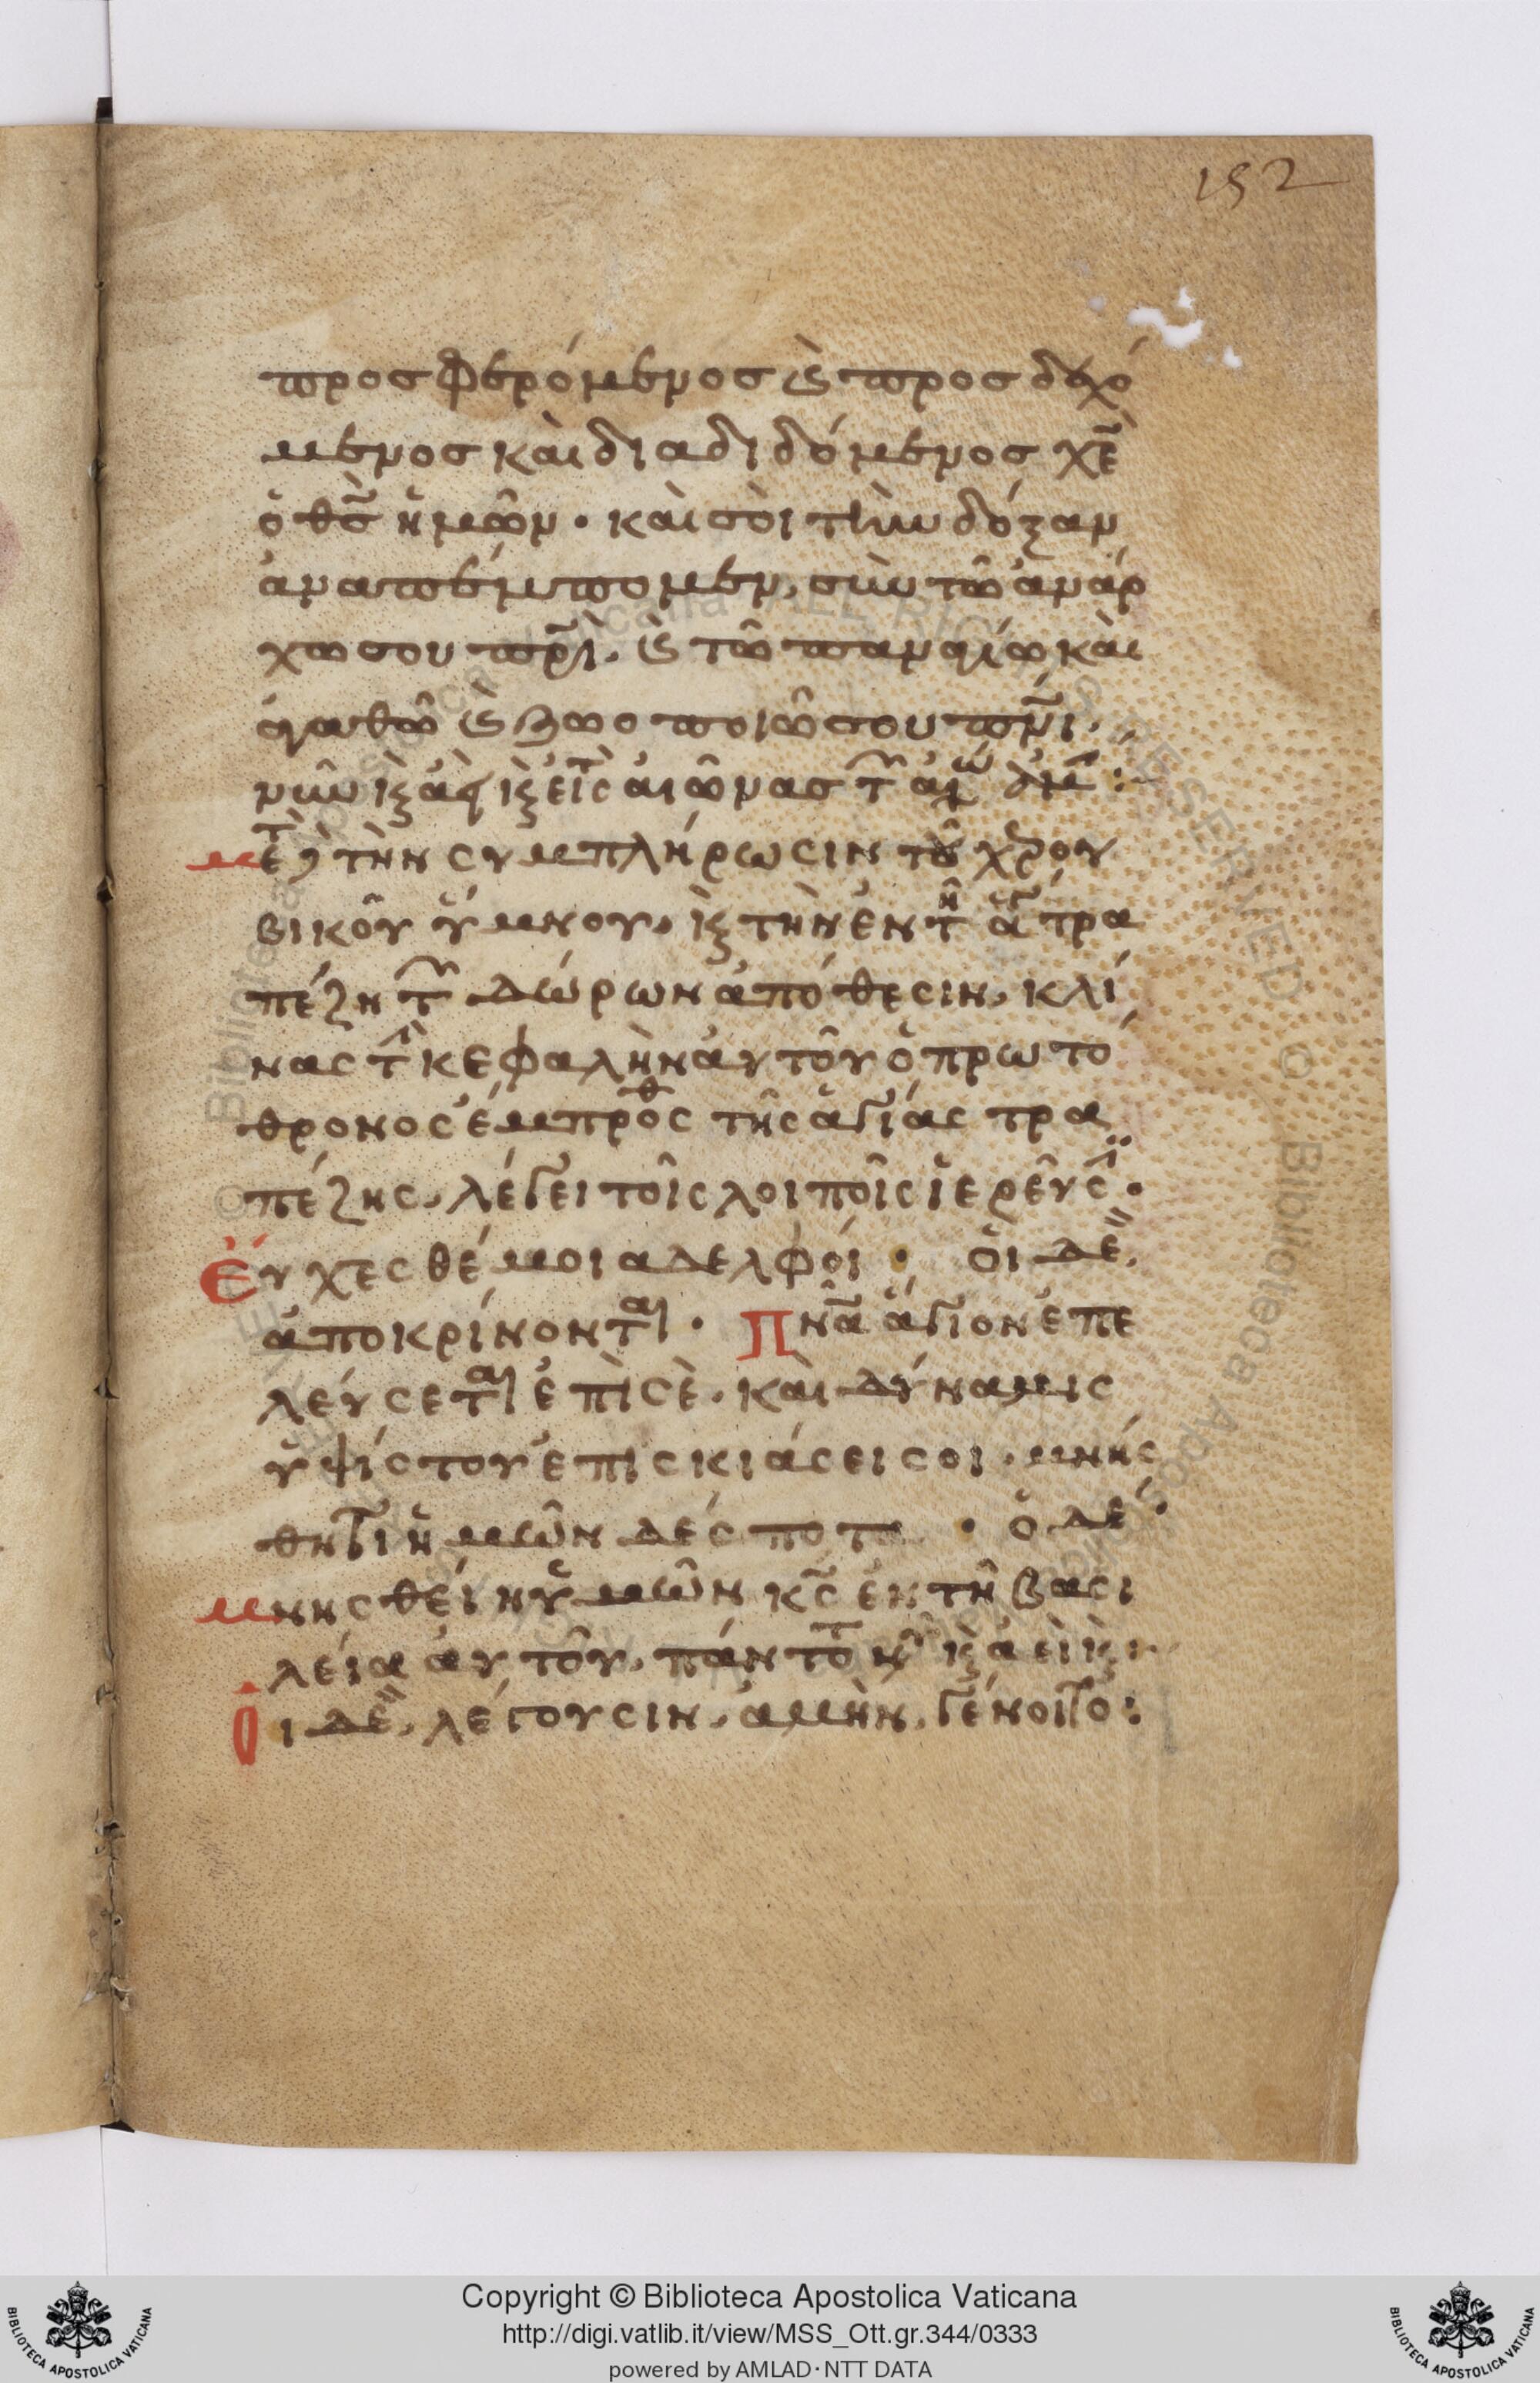 152
προσφερόμενος (καὶ) προσδεχό
μενος καὶ διαδιδόμενος χ̅ε̅
ὁ θ̅ς̅ ἡμῶν · καὶ σοὶ τὴν δόξαν
ἀναπέμπομεν, σὺν τῶ ἀνάρ
χω σου π̅ρ̅ὶ, (καὶ) τῶ παναγίω καὶ
ἀγαθῶ (καὶ) ζωοποιῶ σου π̅ν̅ι̅,
νῦν κ(αὶ) ἀεὶ κ(αὶ) εἰς τ(οὺς) αἰῶνας τ(ῶν) αἰώ(νων) ἀμ(ήν) :
Μετ(ὰ) τὴν συμπλήρωσιν τοῦ χερου
βικοῦ ὕμνου, κ(αὶ) τὴν ἐν τῆ ἁγ(ία) τρα
πέζη τ(ῶν) δώρων ἀπόθεσιν, κλί
νας τ(ὴν) κεφαλὴν αὐτοῦ ὁ πρωτό
θρονος ἔμπροσθ(εν) τῆς ἁγίας τρα
πέζης, λέγει τοῖς λοιποῖς ἱερεῦσι ·
Εὔχεσθέ μοι αδελφοί · Οἱ δὲ,
ἀποκρίνονται · Π̅ν̅α̅ ἅγιον ἐπε
λεύσεται ἐπὶ σὲ · καὶ δύναμις
ὑψίστου ἐπισκιάσει σοι · μνήσ
θητι ἡμῶν δέσποτα · ὁ δέ ·
Μνησθείη ὑμῶν κ̅ς̅ ἐν τῆ βασι
λεία αὐτοῦ, πάντοτ(ε) νῦν κ(αὶ) ἀεὶ κ(αὶ)
Οἱ δὲ, λέγουσιν, ἀμὴν, γένοιτο :
Copyright © Biblioteca Apostolica Vaticana
http://digi.vatlib.it/view/MSS_Ott.gr.344/0333
powered by AMLAD·NTT DATA